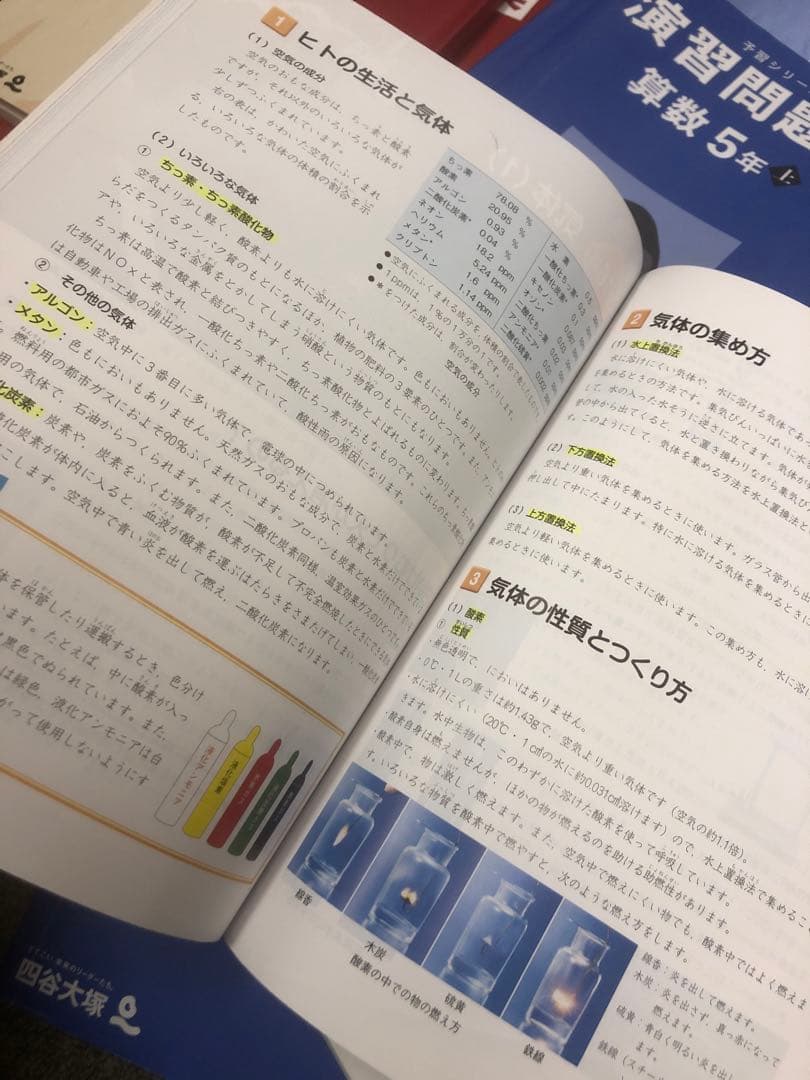 1 ヒトの生活と気体
(1) 空気の成分
空気のおもな成分は、ちっ素と酸素
ですが、それ以外のいろいろな気体が
少しずつふくまれています。
右の表は、かわいた空気にふくまれ
る、いろいろな気体の体積の割合を示
したものです。
ちっ素 78.08 %
酸素 20.95 %
アルゴン 0.93 %
二酸化炭素* 0.04 %
ネオン 18.2 ppm
ヘリウム 5.24 ppm
メタン* 1.6 ppm
クリプトン 1.14 ppm
水素
一酸化ちっ素*
キセノン
オゾン*
二酸化ちっ素
アンモニア
二酸化硫黄*
●空気にふくまれる成分を、体積の割合で表し
●1ppmは、1%の1万分の1です。
●*をつけた成分は、割合が変わったりします。
空気の成分
(2) いろいろな気体
① ちっ素・ちっ素酸化物
空気より少し軽く、酸素よりも水に溶けにくい気体です。色もにおいもありません。
らだをつくるタンパク質のもとになるほか、植物の肥料の3要素のひとつです。また、アン
アや、いろいろな金属をとかしてしまう硝酸という物質のもとにもなります。
ちっ素は高温で酸素と結びつきやすく、ちっ素酸化物とよばれるものに変わります。ちっ素
化物はNOxと表され、一酸化ちっ素や二酸化ちっ素がおもなものです。これらのちっ素
は自動車や工場の排出ガスにふくまれていて、酸性雨の原因になります。
② その他の気体
・アルゴン：空気中に3番目に多い気体で、電球の中につめられています。
・メタン：色もにおいもありません。天然ガスのおもな成分で、炭素と水素だけでで
燃料用の都市ガスにおよそ90%ふくまれています。プロパンも炭素と水素だけでできて
用の気体で、石油からつくられます。また、二酸化炭素同様、温室効果ガスのひとつです。
化炭素：炭素や、炭素をふくむ物質が、酸素が不足して不完全燃焼したときにできる
酸化炭素が体内に入ると、血液が酸素を運ぶはたらきをさまたげてしまい、一酸化
こします。空気中で青い炎を出して燃え、二酸化炭素になります。
体を保管したり運搬するとき、色分け
います。たとえば、中に酸素が入っ
黒色でぬられています。また、
は緑色、液化アンモニアは白
がって使用しないようにす
液化アンモニア
液化塩素
2 気体の集め方
(1) 水上置換法
水に溶けにくい気体や、水に溶ける気体であ
を集めるときの方法です。集気びんいっぱいに水
して、水の入った水そうに逆さに立てます。気体が
管の中から出てくると、水と置き換わりながら集気び
す。このようにして、気体を集める方法を水上置換法と
(2) 下方置換法
空気より重い気体を集めるときに使います。ガラス管から出
押し出して中にたまります。特に水に溶ける気体を集めるときに
(3) 上方置換法
空気より軽い気体を集めるときに使います。この集め方も、水に溶
集めるときに使います。
3 気体の性質とつくり方
(1) 酸素
① 性質
・無色透明で、においはありません。
・0℃・1Lの重さは約1.43gで、空気より重い気体です(空気の約1.1倍)。
・水に溶けにくい(20℃・1㎤の水に約0.031㎤溶けます)ので、水上置換法で集めるこ
きます。水中生物は、このわずかに溶けた酸素を使って呼吸しています。
・酸素自身は燃えませんが、ほかの物が燃えるのを助ける助燃性があります。
・酸素中で、物は激しく燃えます。また、空気中で燃えにくい物でも、酸素中ではよく燃えま
す。いろいろな物質を酸素中で燃やすと、次のような燃え方をします。
線香
木炭
硫黄
鉄線
酸素の中での物の燃え方
線香：炎を出して燃えます。
木炭：炎を出さず、真っ赤になって
燃えます。
硫黄：青白く明るい炎を出し
ます。
鉄線(スチー
予習シリー
演習問題
算数5年 上
四谷大塚